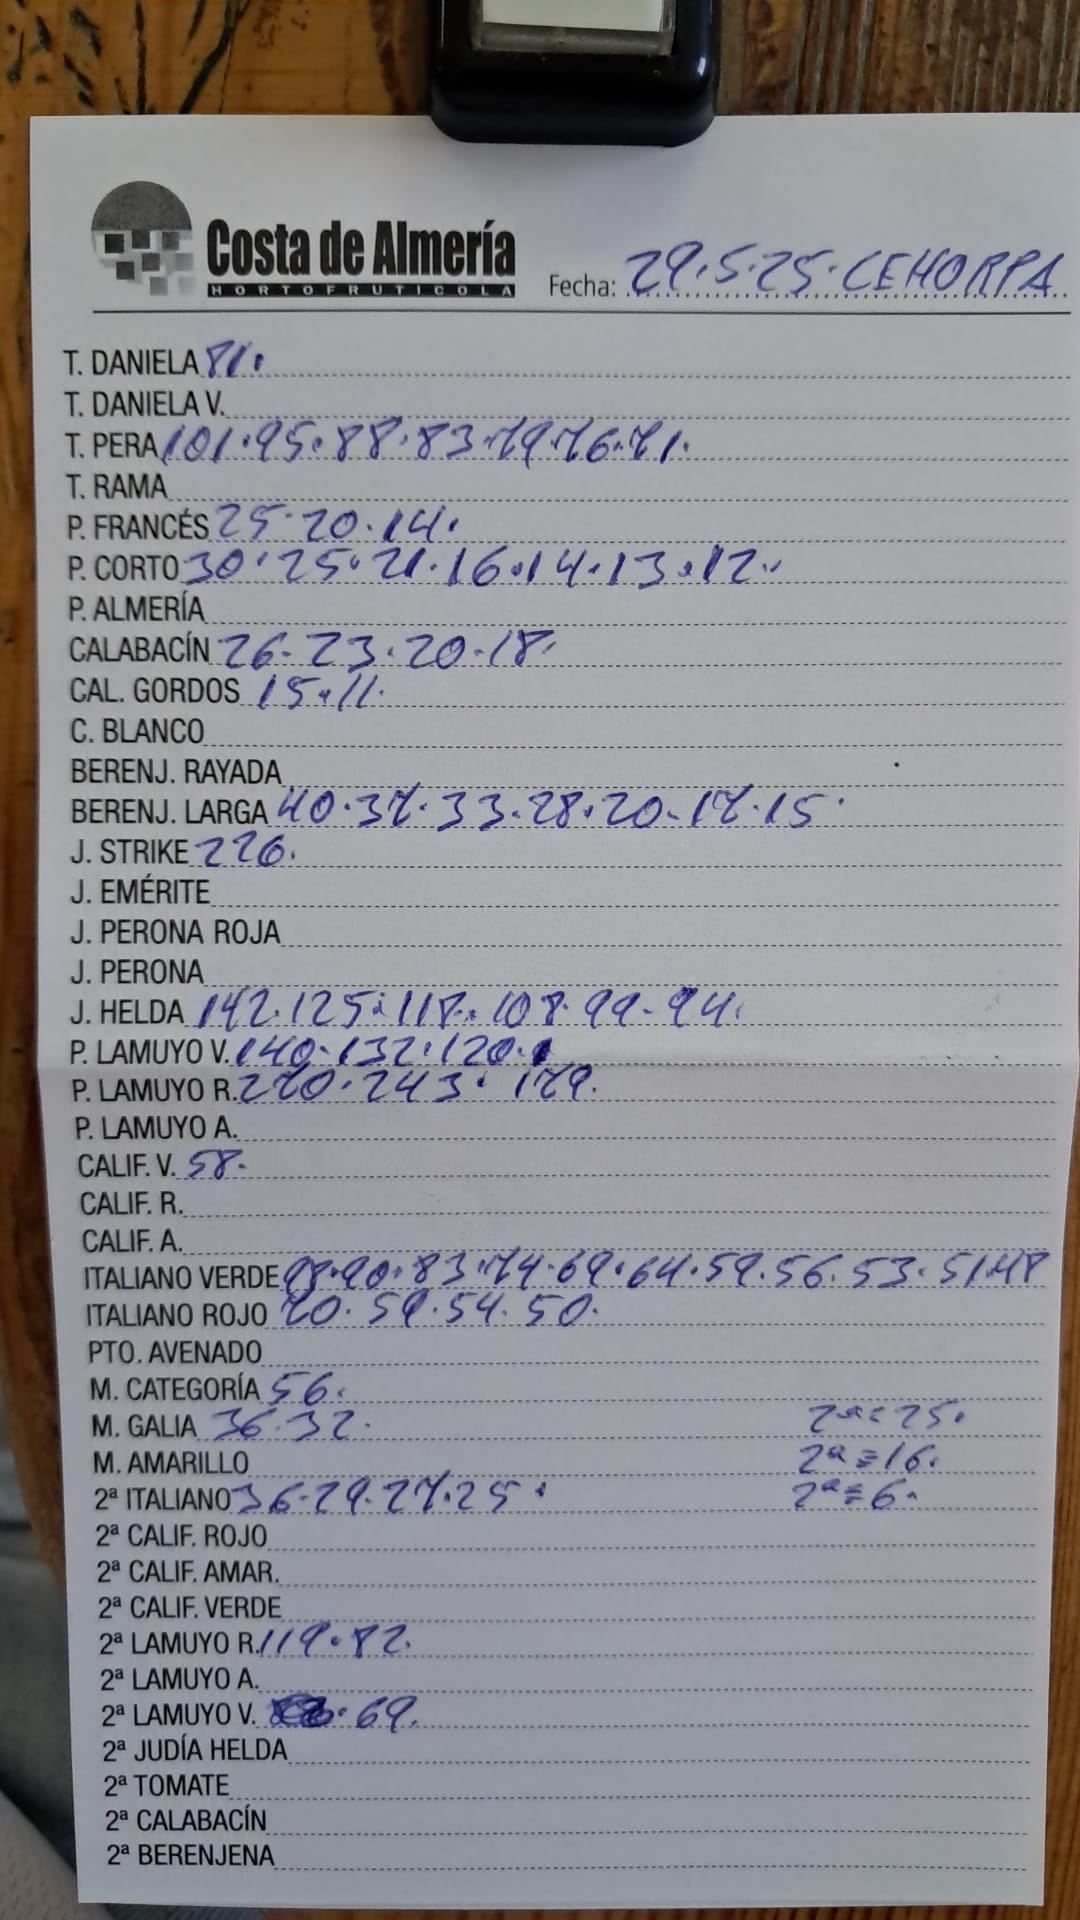 Costa de Almería
HORTOFRUTICOLA
Fecha: 29.5.25. CEHORPA
T. DANIELA 81.
T. DANIELA V.
T. PERA 101.95.88.83.79.76.71.
T. RAMA
P. FRANCÉS 25.20.14.
P. CORTO 30.25.21.16.14.13.12.
P. ALMERÍA
CALABACÍN 26.23.20.18.
CAL. GORDOS 15.11.
C. BLANCO
BERENJ. RAYADA
BERENJ. LARGA 40.37.33.28.20.17.15
J. STRIKE 226.
J. EMÉRITE
J. PERONA ROJA
J. PERONA
J. HELDA 142.125.118.108.99.94.
P. LAMUYO V. 140.132.120.
P. LAMUYO R. 270.243.179.
P. LAMUYO A.
CALIF. V. 58.
CALIF. R.
CALIF. A.
ITALIANO VERDE 90.83.74.69.64.59.56.53.51.48
ITALIANO ROJO 70.59.54.50.
PTO. AVENADO
M. CATEGORÍA 56.
M. GALIA 36.32. 2ª=25.
M. AMARILLO 2ª=16.
2ª ITALIANO 36.29.27.25. 2ª=6.
2ª CALIF. ROJO
2ª CALIF. AMAR.
2ª CALIF. VERDE
2ª LAMUYO R. 119.82.
2ª LAMUYO A.
2ª LAMUYO V. 69.
2ª JUDÍA HELDA
2ª TOMATE
2ª CALABACÍN
2ª BERENJENA